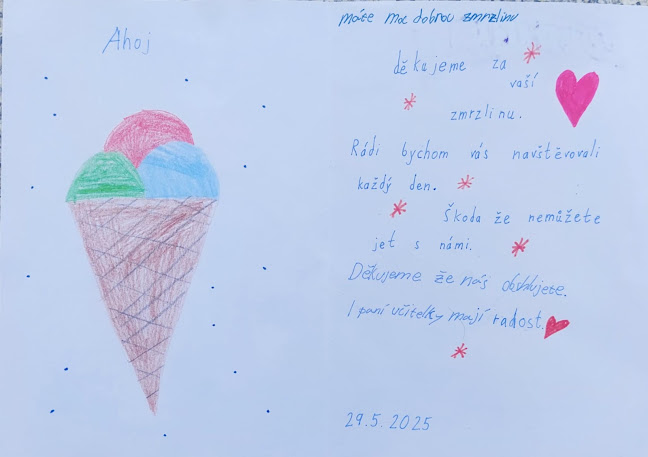 Ahoj
máte moc dobrou zmrzlinu
děkujeme za
vaší
zmrzlinu.
Rádi bychom vás navštěvovali
každý den.
Škoda že nemůžete
jet s námi.
Děkujeme že nás obsluhujete.
I paní učitelky mají radost.
29.5.2025